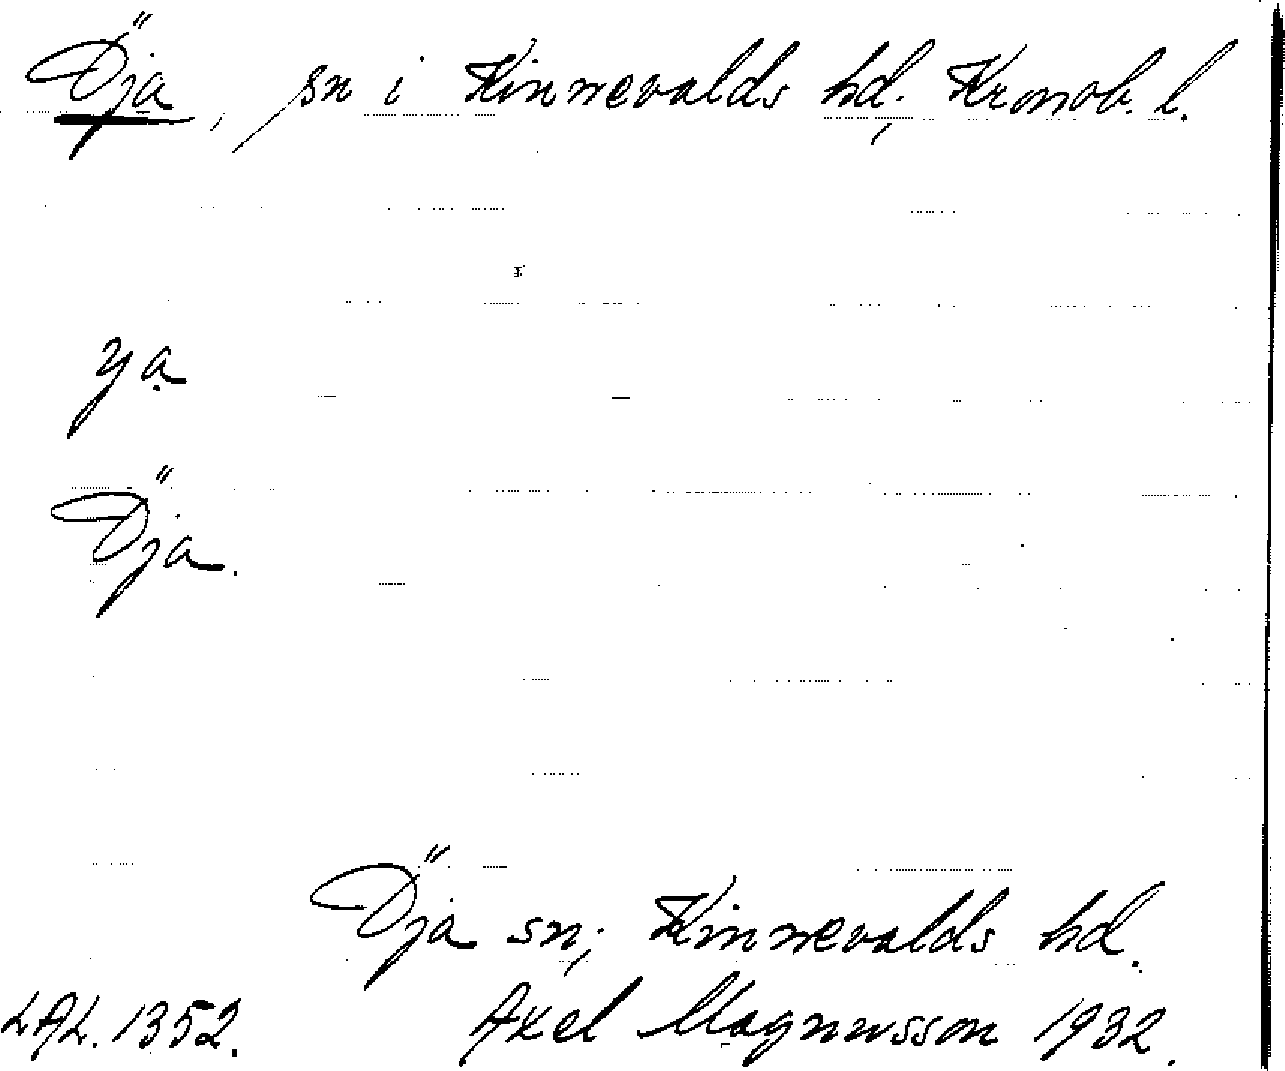 Öja, sn i Kinnevalds hd, Kronob. l.
ya
Öja.
Öja sn; Kinnevalds hd.
LAL. 1352. Axel Magnusson 1932.